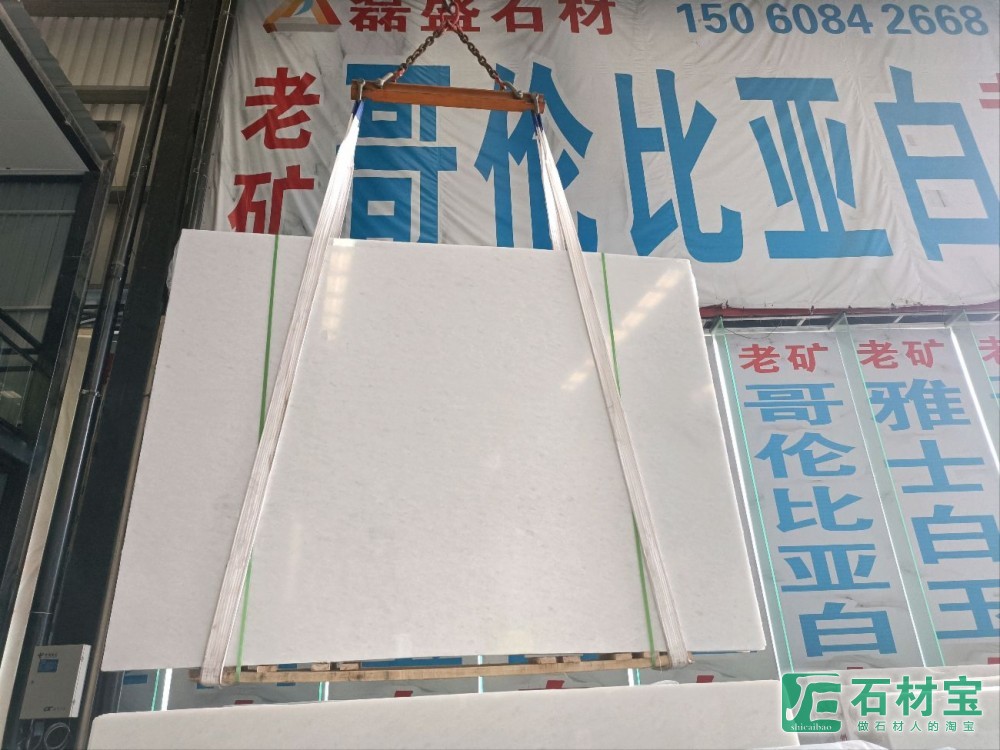 磊盛石材
150 6084 2668
老矿
哥伦比亚白
老矿
哥伦比亚白
老矿
雅士白玉
石材宝
shicaibao
做石材人的淘宝